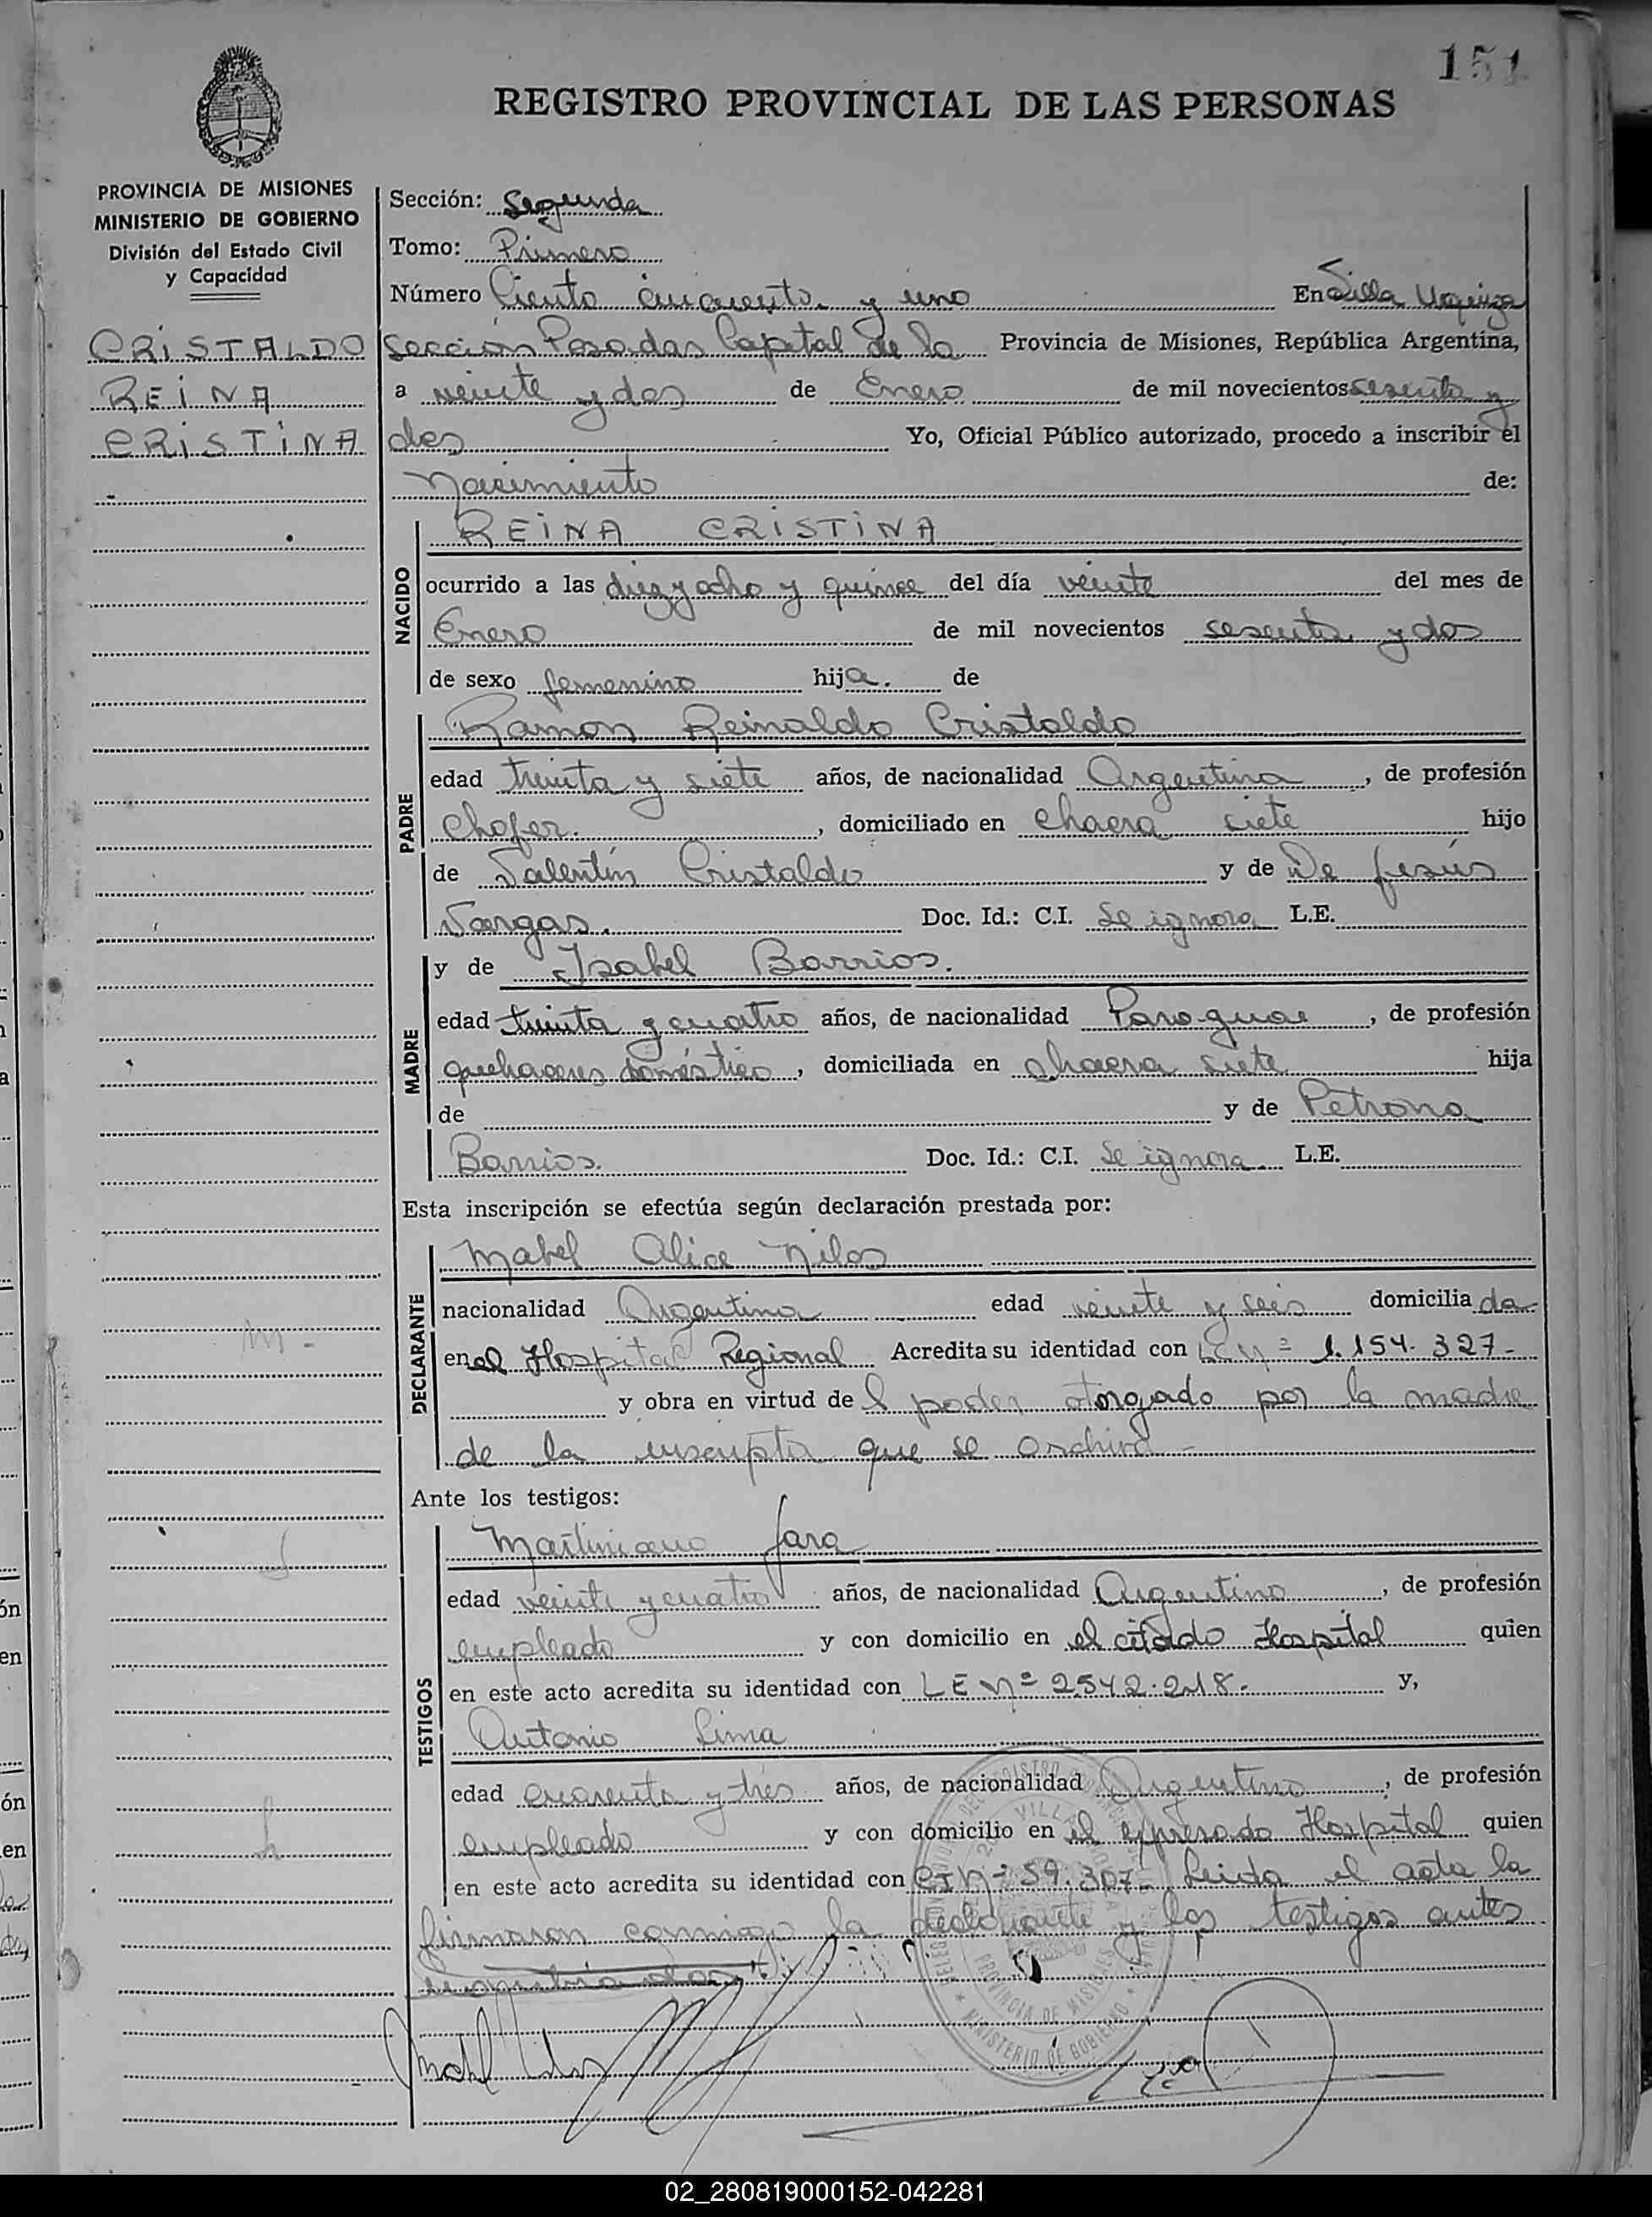 151
REGISTRO PROVINCIAL DE LAS PERSONAS
PROVINCIA DE MISIONES
MINISTERIO DE GOBIERNO
División del Estado Civil
y Capacidad
CRISTALDO
REINA
CRISTINA
Sección: Segunda
Tomo: Primero
Número Ciento cincuenta y uno En Villa Urquiza
sección Posadas Capital de la Provincia de Misiones, República Argentina,
a veinte y dos de Enero de mil novecientos sesenta y
dos Yo, Oficial Público autorizado, procedo a inscribir el
Nacimiento de:
NACIDO
REINA CRISTINA
ocurrido a las diez y ocho y quince del día veinte del mes de
Enero de mil novecientos sesenta y dos
de sexo femenino hija. de
PADRE
Ramon Reinaldo Cristaldo
edad treinta y siete años, de nacionalidad Argentina, de profesión
Chofer. , domiciliado en chacra siete hijo
de Valentín Cristaldo y de De Jesús
Vargas. Doc. Id.: C.I. Se ignora L.E.
MADRE
y de Isabel Barrios.
edad treinta y cuatro años, de nacionalidad Paraguae, de profesión
quehaceres doméstico, domiciliada en chacra siete hija
de y de Petrona
Barrios. Doc. Id.: C.I. Se ignora L.E.
Esta inscripción se efectúa según declaración prestada por:
DECLARANTE
Mabel Alice Nilos
nacionalidad Argentina edad veinte y seis domiciliada
en el Hospital Regional Acredita su identidad con LC Nº 1.154.327-
y obra en virtud del poder otorgado por la madre
de la inscripta que se archiva-
Ante los testigos:
TESTIGOS
Martiniano Jara
edad veinte y cuatro años, de nacionalidad Argentino, de profesión
empleado y con domicilio en el citado Hospital quien
en este acto acredita su identidad con LE Nº 2.542.218. y,
Antonio Lima
edad cuarenta y tres años, de nacionalidad Argentino, de profesión
empleado y con domicilio en el expresado Hospital quien
en este acto acredita su identidad con CI Nº 59.307- Leida el acta la
firmaron conmigo la declarante y los testigos antes
PROVINCIA DE MISIONES
MINISTERIO DE GOBIERNO
02_280819000152-042281